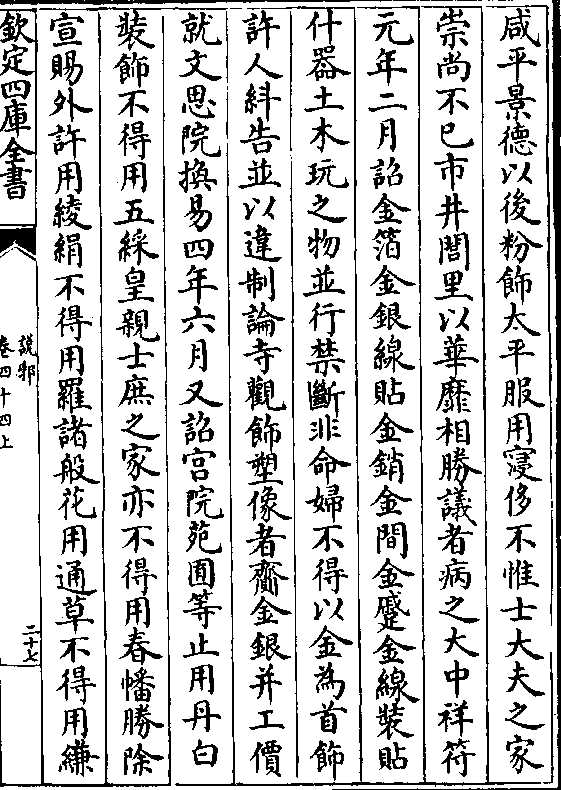 咸平景德以後粉飾太平服用寖侈不惟士大夫之家
崇尚不已市井閭里以華靡相勝議者病之大中祥符
元年二月詔金箔金銀線貼金銷金間金蹙金線裝貼
什器土木玩之物並行禁斷非命婦不得以金為首飾
許人紏告並以違制論寺觀飾塑像者齎金銀并工價
就文思院換易四年六月又詔宫院苑囿等止用丹白
裝飾不得用五綵皇親士庶之家亦不得用春幡勝除
宣賜外許用綾絹不得用羅諸般花用通草不得用縑
欽定四庫全書
說郛
卷四十四上
二十七